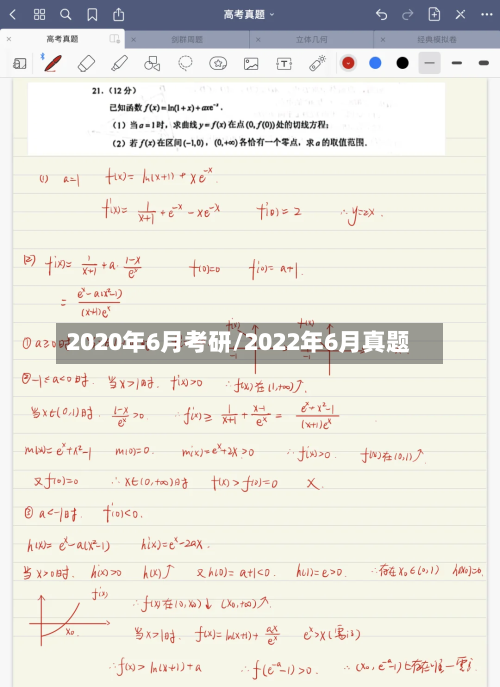 高考真题
高考真题
立体几何
经典模拟卷
21.（12 分）
已知函数 f(x)=ln(1+x)+axe⁻ˣ.
（1）当 a=1时，求曲线 y=f(x) 在点 (0, f(0)) 处的切线方程；
（2）若 f(x) 在区间 (-1,0)，(0,+∞) 各恰有一个零点，求 a 的取值范围.
(1) a=1 f(x)= ln(x+1) + xe⁻ˣ
f'(x)= 1/(x+1) + e⁻ˣ - xe⁻ˣ f'(0)=2 ∴y=2x.
(2) f'(x)= 1/(x+1) + a·(1-x)/eˣ f(0)=0 f'(0)=a+1.
= (eˣ-a(x²-1))/((x+1)eˣ)
2020年6月考研/2022年6月真题
②-1≤a<0时. 当x>1时. f'(x)>0 ∴f(x)在(1,+∞)↗.
当x∈(0,1)时. (1-x)/eˣ>0. ∴f'(x)≥ 1/(x+1) + (x-1)/eˣ = (eˣ+x²-1)/((x+1)eˣ)
m(x)=eˣ+x²-1 m(0)=0. m'(x)=eˣ+2x>0 ∴f'(x)>0. f(x)在(0,1)↗
又f(0)=0 ∴x∈(0,+∞)时 f(x)>f(0)=0 X.
③ a<-1时. f'(0)<0.
h(x)= eˣ-a(x²-1) h'(x)=eˣ-2ax.
当x>0时. h'(x)>0 h(x)↗ 又h(0)=a+1<0. h(1)=e>0. ∴存在x₀∈(0,1) h(x₀)=0.
f(x)
x₀
∴f(x)在(0,x₀)↓ (x₀,+∞)↗.
当x>1时. f(x)=ln(x+1)+ ax/eˣ eˣ>x(需证)
∴f(x)>ln(x+1)+a ∴f(e⁻ᵃ-1)>0. ∴(x₀, e⁻ᵃ-1)上存在唯一零点